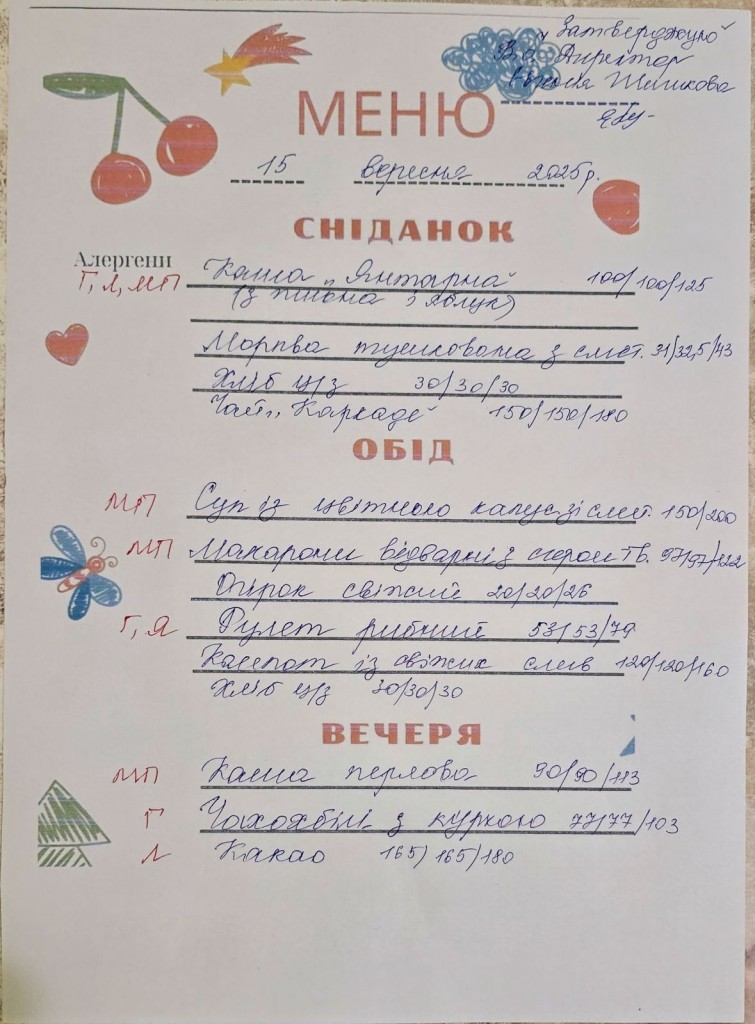 „Затверджую"
В.о. Директор
Шишкова
МЕНЮ
15 вересня 2025 р.
СНІДАНОК
Алергени
Г, Л, МП Каша „Янтарна" 100/100/125
(з пшона з яблук)
Морква тушкована з смет. 31/32,5/43
Хліб ц/з 30/30/30
Чай „Каркаде" 150/150/180
ОБІД
МП Суп із цвітною капус. зі смет. 150/200
МП Макарони відварні з сиром тв. 97/97/122
Огірок свіжий 20/20/26
Г, Я Рулет рибний 53/53/79
Компот із свіжих слив 120/120/160
Хліб ц/з 30/30/30
ВЕЧЕРЯ
МП Каша перлова 90/90/113
Г Чахохбілі з куркою 77/77/103
Л Какао 165/165/180